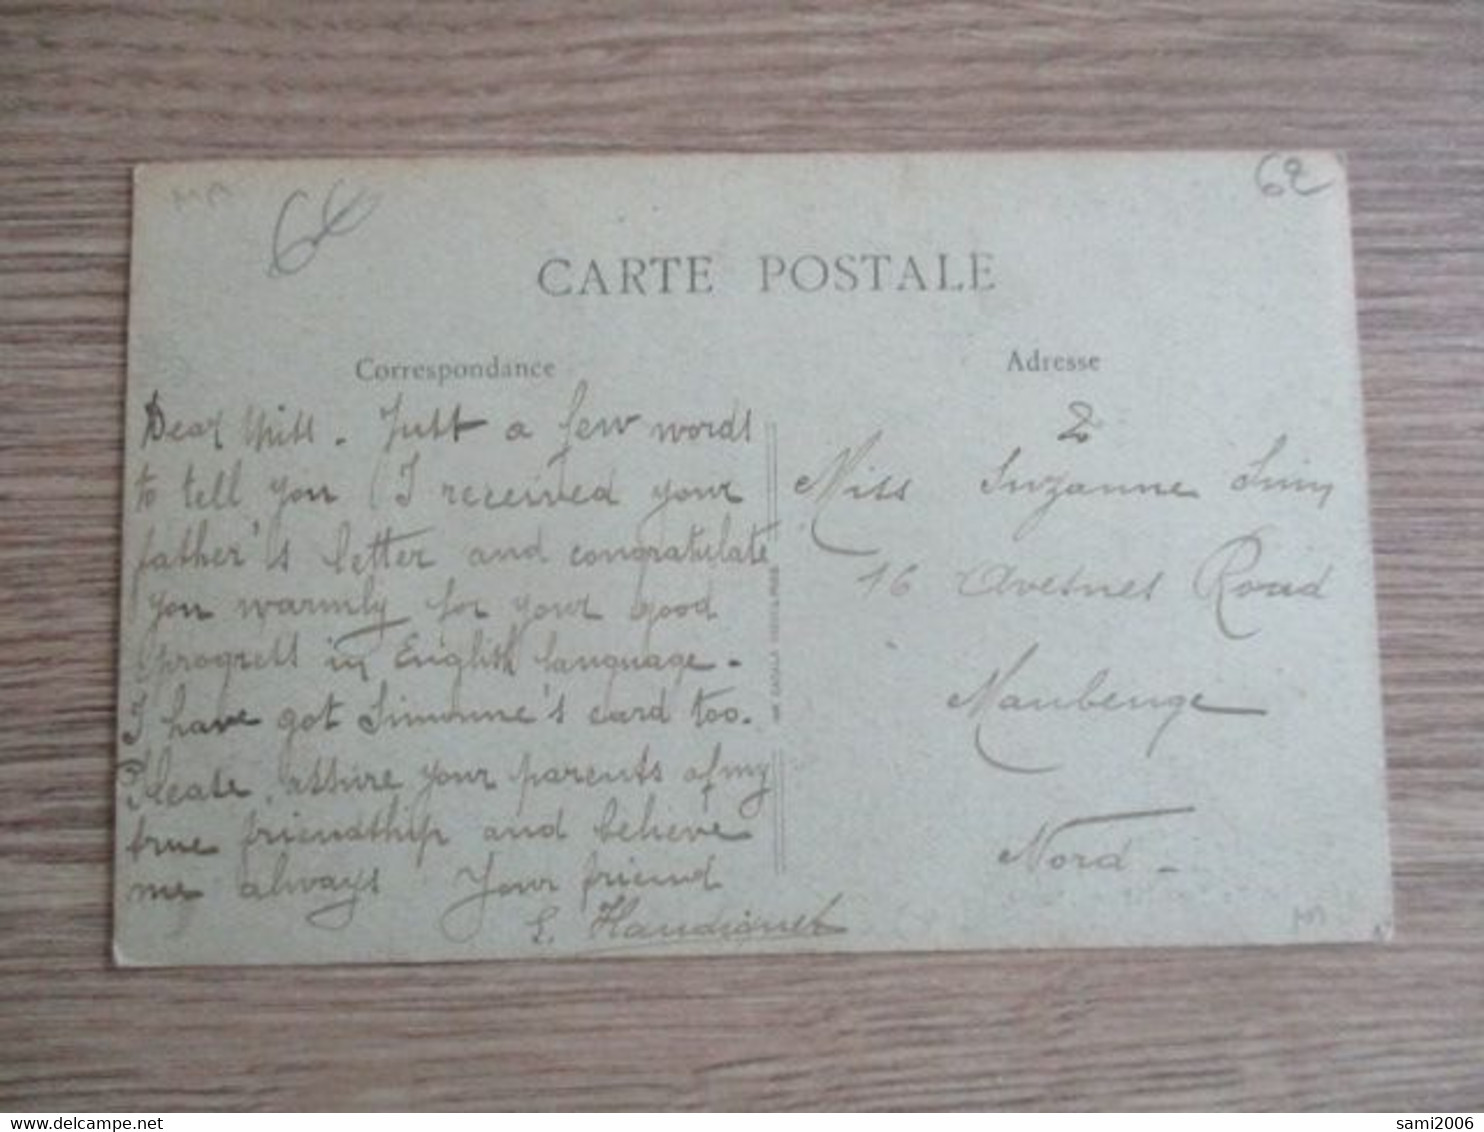 62
CARTE POSTALE
Correspondance
Adresse
Dear Miss. Just a few words
to tell you I received your
father's letter and congratulate
you warmly for your good
progress in English language.
I have got Simonne's card too.
Please, assure your parents of my
true friendship and believe
me always Your friend
Miss Suzanne
16 Avesnes Road
Maubeuge
Nord -
sami2006